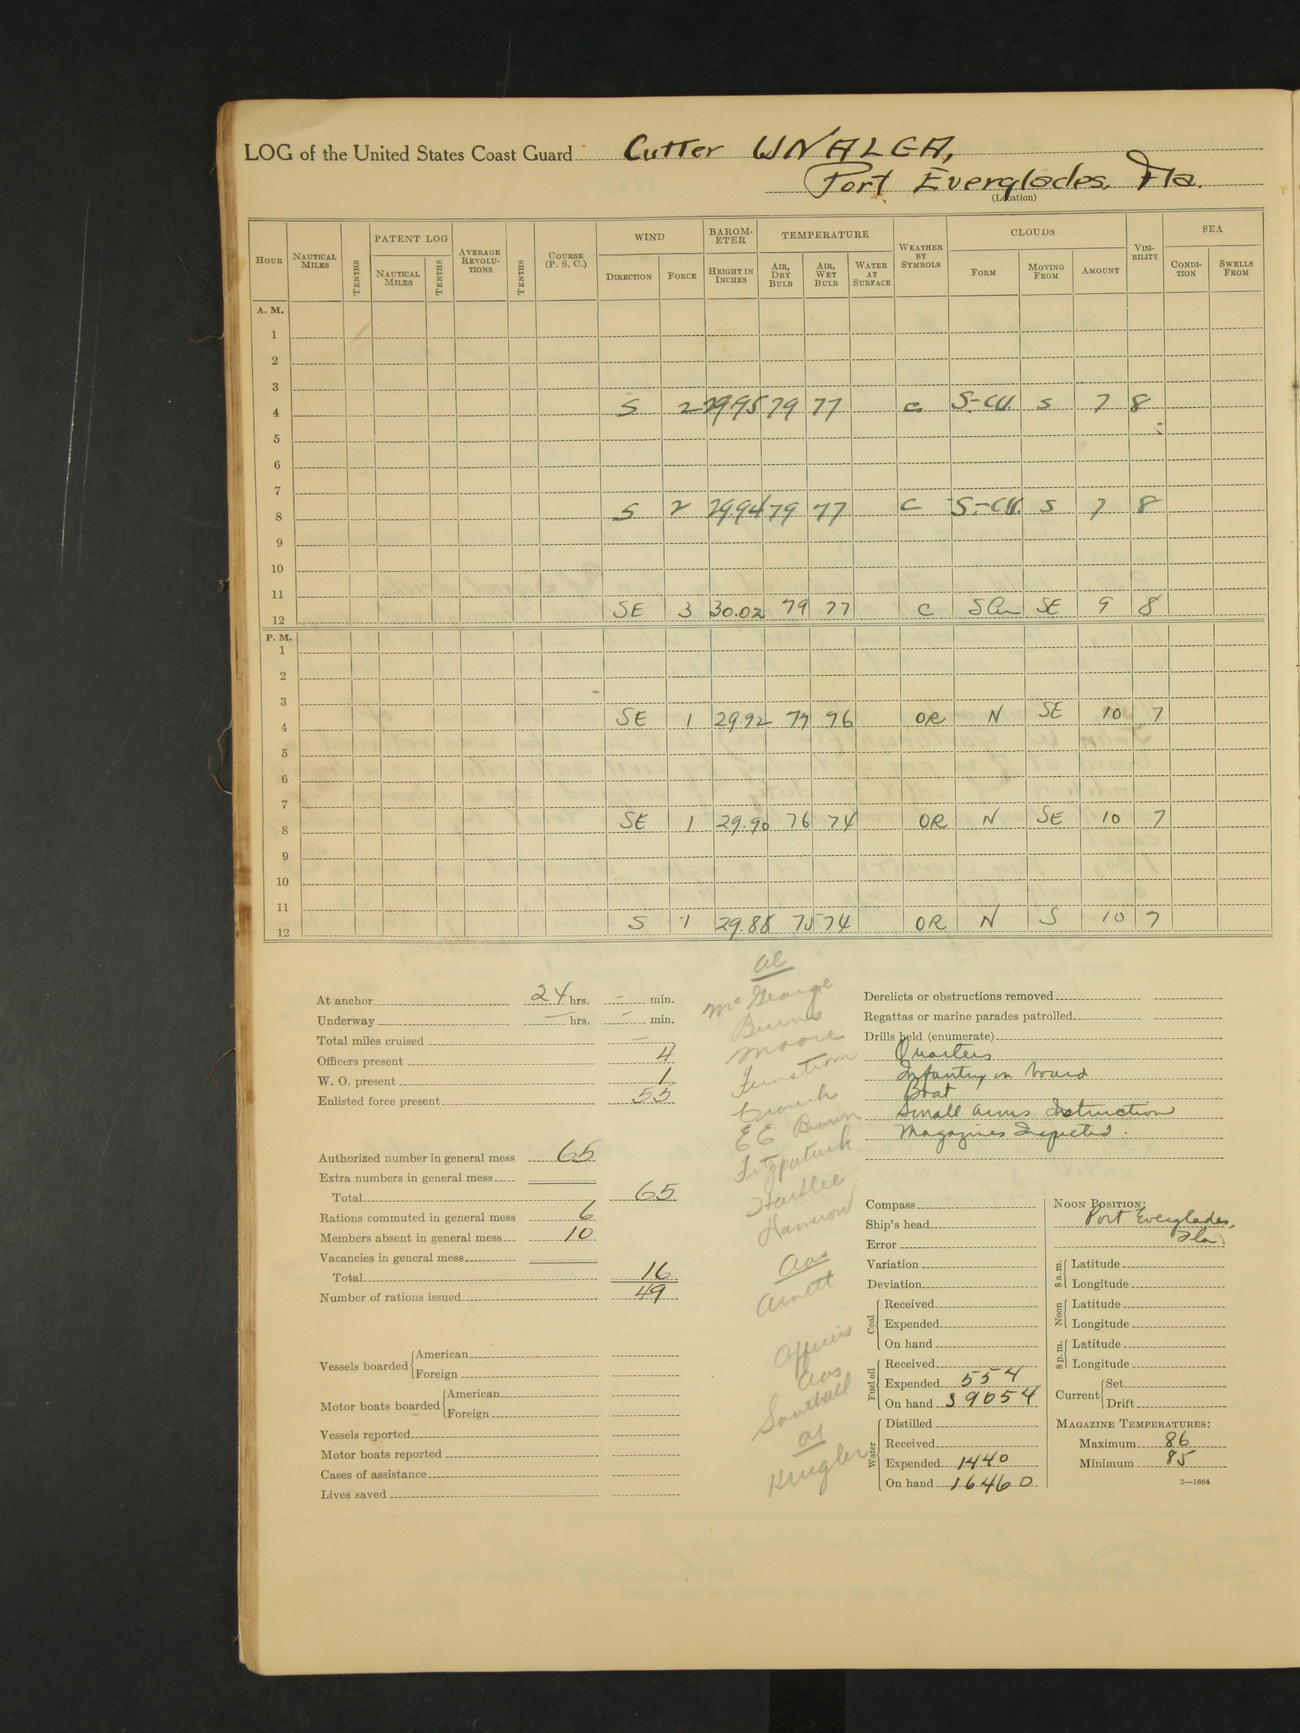 LOG of the United States Coast Guard Cutter UNALGA,
Port Everglades, Fla.
(Location)
HOUR NAUTICAL MILES TENTHS PATENT LOG NAUTICAL MILES TENTHS AVERAGE REVOLUTIONS TENTHS COURSE (P. S. C.) WIND DIRECTION FORCE BAROMETER HEIGHT IN INCHES TEMPERATURE AIR, DRY BULB AIR, WET BULB WATER AT SURFACE WEATHER BY SYMBOLS CLOUDS FORM MOVING FROM AMOUNT VISIBILITY SEA CONDITION SWELLS FROM
A. M.
1
2
3
4 S 2 29.95 79 77 c S-CU. S 7 8
5
6
7
8 S 2 29.94 79 77 C S-CU. S 7 8
9
10
11
12 SE 3 30.02 79 77 C SCu SE 9 8
P. M.
1
2
3
4 SE 1 29.92 77 76 OR N SE 10 7
5
6
7
8 SE 1 29.90 76 74 OR N SE 10 7
9
10
11
12 S 1 29.88 75 74 OR N S 10 7
At anchor 24 hrs. - min.
Underway — hrs. — min.
Total miles cruised —
Officers present 4
W. O. present 1
Enlisted force present 55
Authorized number in general mess 65
Extra numbers in general mess
Total 65
Rations commuted in general mess 6
Members absent in general mess 10
Vacancies in general mess
Total 16
Number of rations issued 49
Vessels boarded American
Foreign
Motor boats boarded American
Foreign
Vessels reported
Motor boats reported
Cases of assistance
Lives saved
al
McGeorge
Burns
Moore
Crouch
E E Brown
Fitzpatrick
Hartlee
Harrison
aos
Arnett
Officers
aos
Southall
al
Krugler
Derelicts or obstructions removed
Regattas or marine parades patrolled
Drills held (enumerate)
Quarters
Infantry on board
Boat
Small arms Instruction
Magazines Inspected.
Compass
Ship's head
Error
Variation
Deviation
Coal Received
Expended
On hand
Fuel oil Received
Expended 554
On hand 39054
Water Distilled
Received
Expended 1440
On hand 16460
NOON POSITION:
Port Everglades,
Fla.
8 a. m. Latitude
Longitude
Noon Latitude
Longitude
8 p. m. Latitude
Longitude
Current Set
Drift
MAGAZINE TEMPERATURES:
Maximum 86
Minimum 85
2—1664